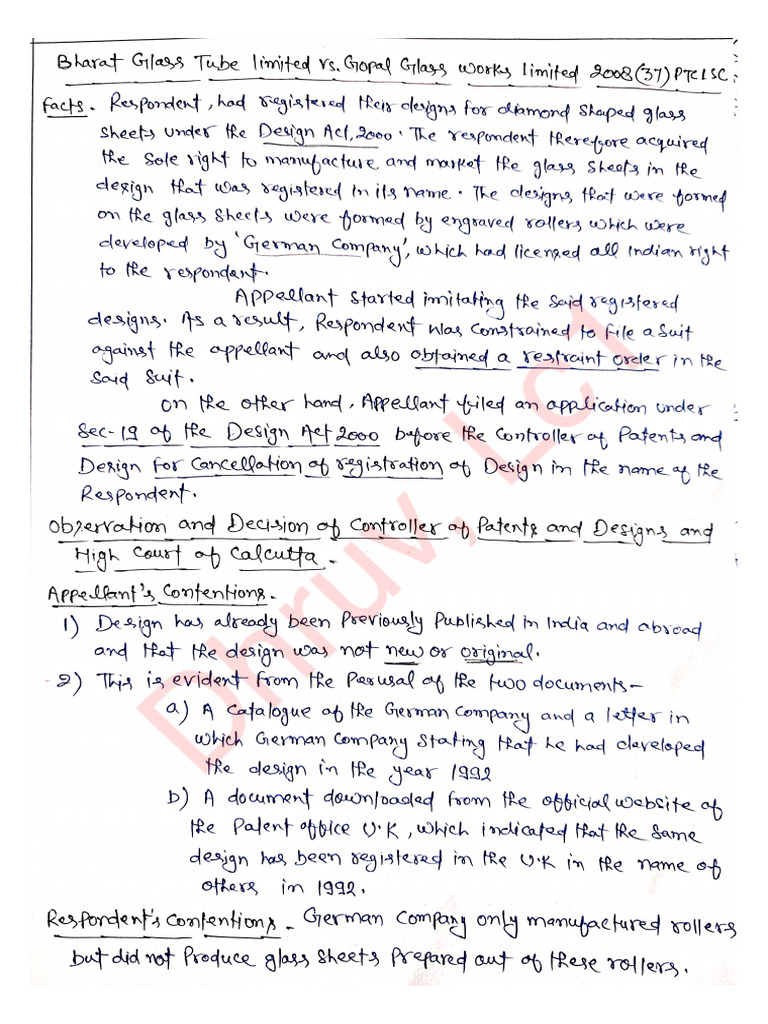 Bharat Glass Tube limited vs. Gopal Glass works limited 2008(37) PTC 1 SC
Facts. Respondent, had registered their designs for diamond shaped glass
sheets under the Design Act, 2000. The respondent therefore acquired
the sole right to manufacture and market the glass sheets in the
design that was registered in its name. The designs that were formed
on the glass sheets were formed by engraved rollers which were
developed by 'German Company', which had licensed all Indian right
to the respondent.
Appellant started imitating the said registered
designs. As a result, Respondent was constrained to file a suit
against the appellant and also obtained a restraint order in the
said suit.
On the other hand, Appellant filed an application under
Sec-19 of the Design Act 2000 before the Controller of Patents and
Design for Cancellation of registration of Design in the name of the
Respondent.
Observation and Decision of Controller of Patents and Designs and
High Court of Calcutta.
Appellant's Contentions.
1) Design has already been Previously Published in India and abroad
and that the design was not new or original.
2) This is evident from the Perusal of the two documents-
a) A catalogue of the German Company and a letter in
which German Company stating that he had developed
the design in the year 1992
b) A document downloaded from the official website of
the Patent office U.K, which indicated that the same
design has been registered in the U.K in the name of
others in 1992.
Respondent's Contentions - German Company only manufactured rollers
but did not Produce glass sheets Prepared out of these rollers.
Dhruv, LC1